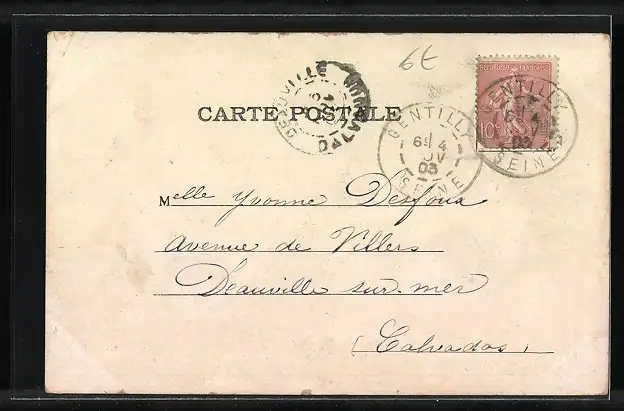 6€
REPUBLIQUE FRANÇAISE
10c
CARTE POSTALE
DEAUVILLE
CALVADOS
GENTILLY
6E 4
03
SEINE
GENTILLY
6E 4
03
SEINE
Melle Yvonne Desfoux
Avenue de Villers
Deauville sur-mer
(Calvados)